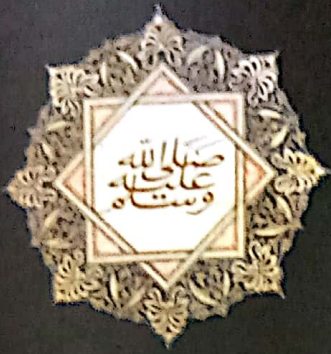 صَلَّى اللّٰه
عليه
وسلم